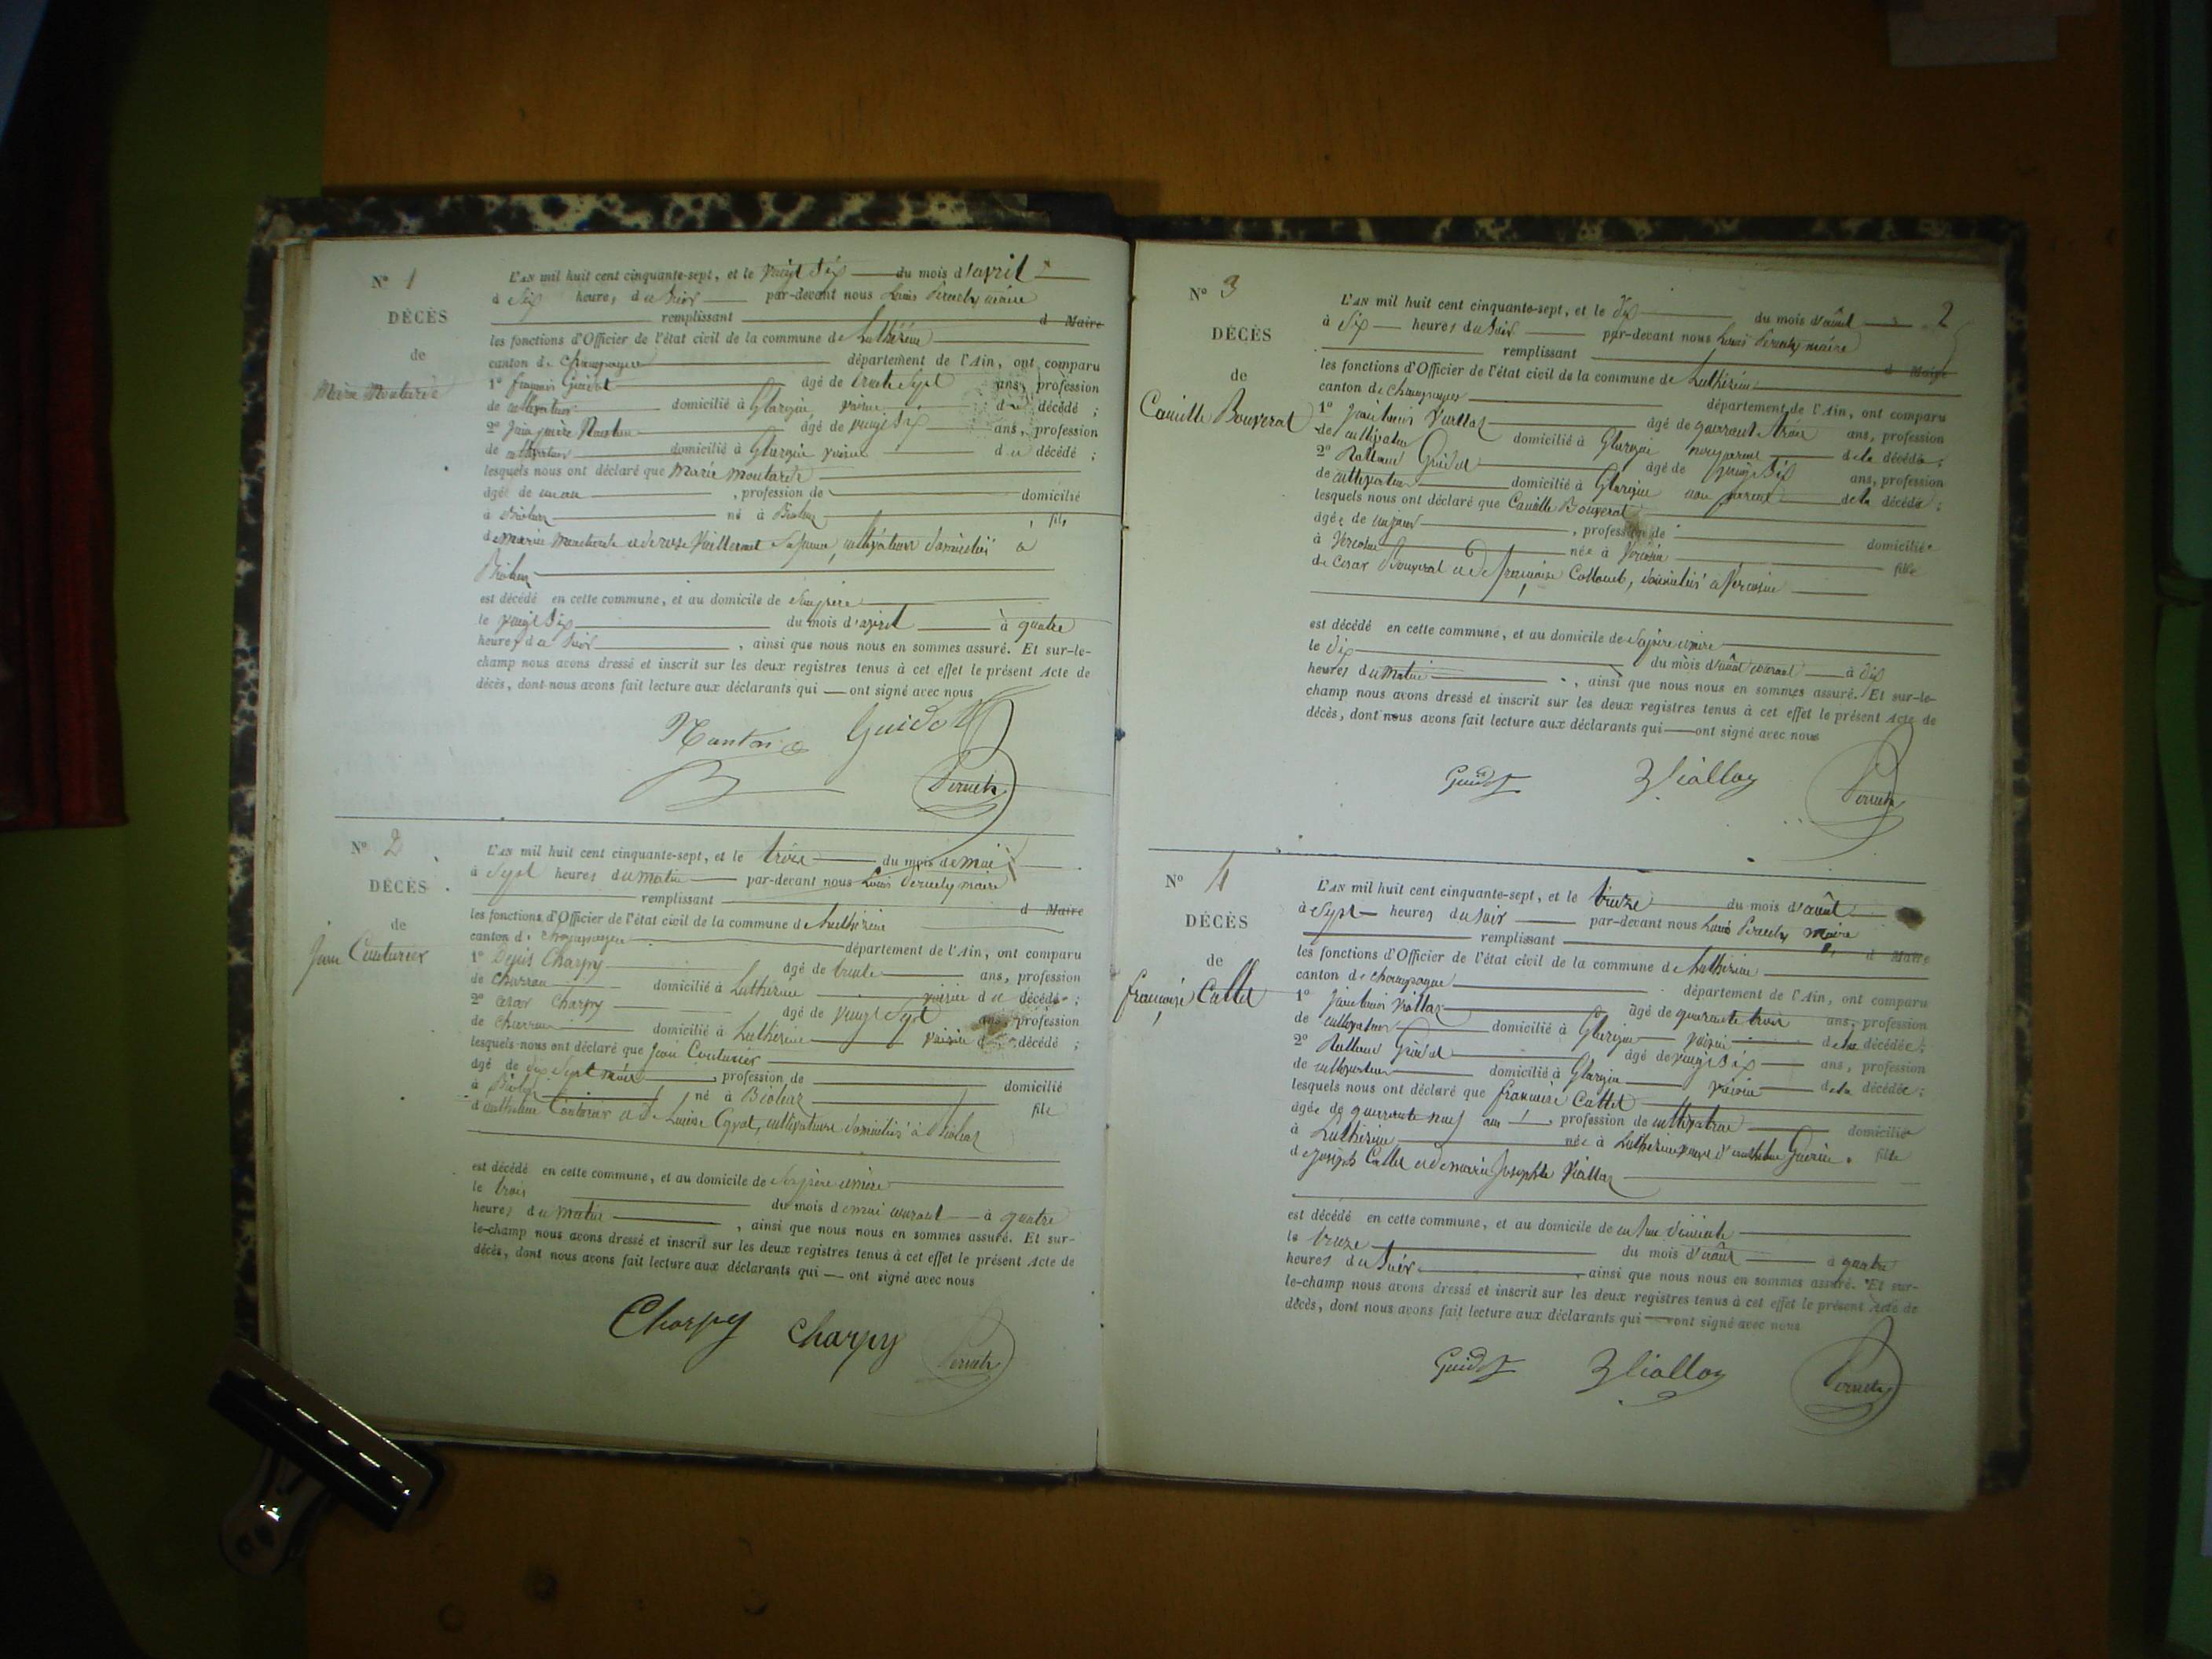 N° 1
DÉCÈS
de
Marie Moutarde
L'AN mil huit cent cinquante-sept, et le vingt six du mois d'avril
à six heures du soir par-devant nous Louis Peruch maire
remplissant d Maire
les fonctions d'Officier de l'état civil de la commune de Luthézieu
canton de Champagne département de l'Ain, ont comparu
1° françois Guidot âgé de trente sept ans, profession
de cultivateur domicilié à Glargin voisin du décédé ;
2° âgé de vingt six ans, profession
de cultivateur domicilié à Glargin voisin du décédé ;
lesquels nous ont déclaré que Marie moutarde
âgée de un an , profession de domicilié
à Bioleaz né à Bioleaz , fils
de marin Moutarde et de rose Vuillermet sa femme, cultivateurs domiciliés à
Bioleaz
est décédé en cette commune, et au domicile de son père
le vingt six du mois d'avril à quatre
heures du soir , ainsi que nous nous en sommes assuré. Et sur-le-
champ nous avons dressé et inscrit sur les deux registres tenus à cet effet le présent Acte de
décès, dont nous avons fait lecture aux déclarants qui ont signé avec nous
Guidot
Peruch
N° 2
DÉCÈS
de
Jean Couturier
L'AN mil huit cent cinquante-sept, et le trois du mois de mai
à sept heures du matin par-devant nous Louis Peruch maire
remplissant d Maire
les fonctions d'Officier de l'état civil de la commune de Luthézieu
canton de Champagne département de l'Ain, ont comparu
1° Denis Charpy âgé de trente ans, profession
de charron domicilié à Luthézieu voisin du décédé ;
2° César Charpy âgé de vingt sept ans, profession
de charron domicilié à Luthézieu voisin d décédé ;
lesquels nous ont déclaré que Jean Couturier
âgé de dix sept mois , profession de domicilié
à Bioleaz né à Bioleaz fils
d'anthelme Couturier et de Louise cultivateurs domiciliés à Bioleaz
est décédé en cette commune, et au domicile de ses père et mère
le trois du mois de mai courant à quatre
heures du matin , ainsi que nous nous en sommes assuré. Et sur-
le-champ nous avons dressé et inscrit sur les deux registres tenus à cet effet le présent Acte de
décès, dont nous avons fait lecture aux déclarants qui ont signé avec nous
Charpy Charpy Peruch
2
N° 3
DÉCÈS
de
Camille Bouverat
L'AN mil huit cent cinquante-sept, et le dix du mois d'août
à six heures du soir par-devant nous Louis Peruch maire
remplissant d Maire
les fonctions d'Officier de l'état civil de la commune de Luthézieu
canton de Champagne département de l'Ain, ont comparu
1° Jean Louis Viallaz âgé de quarante trois ans, profession
de cultivateur domicilié à Glargin non parent de la décédée ;
2° Rolland Guidot âgé de vingt six ans, profession
de cultivateur domicilié à Glargin non parent de la décédée ;
lesquels nous ont déclaré que Camille Bouverat
âgée de un jour , profession de domiciliée
à Vercosin née à Vercosin fille
de César Bouverat et de françoise Collomb, domiciliés à Vercosin
est décédé en cette commune, et au domicile de ses père et mère
le dix du mois d'août courant à dix
heures du matin , ainsi que nous nous en sommes assuré. Et sur-le-
champ nous avons dressé et inscrit sur les deux registres tenus à cet effet le présent Acte de
décès, dont nous avons fait lecture aux déclarants qui ont signé avec nous
Guidot Viallaz Peruch
N° 4
DÉCÈS
de
françoise Callet
L'AN mil huit cent cinquante-sept, et le treize du mois d'août
à sept heures du soir par-devant nous Louis Peruch maire
remplissant d Maire
les fonctions d'Officier de l'état civil de la commune de Luthézieu
canton de Champagne département de l'Ain, ont comparu
1° Jean Louis Viallaz âgé de quarante trois ans, profession
de cultivateur domicilié à Glargin voisin de la décédée ;
2° Rolland Guidot âgé de vingt six ans, profession
de cultivateur domicilié à Glargin voisin de la décédée ;
lesquels nous ont déclaré que françoise Callet
âgée de quarante neuf ans , profession de cultivatrice domiciliée
à Luthézieu née à Luthézieu veuve d'anthelme Guérin . fille
de Joseph Callet et de marie Josephte Viallaz
est décédé en cette commune, et au domicile de
le treize du mois d'août à quatre
heures du soir , ainsi que nous nous en sommes assuré. Et sur-
le-champ nous avons dressé et inscrit sur les deux registres tenus à cet effet le présent Acte de
décès, dont nous avons fait lecture aux déclarants qui ont signé avec nous
Guidot Viallaz Peruch